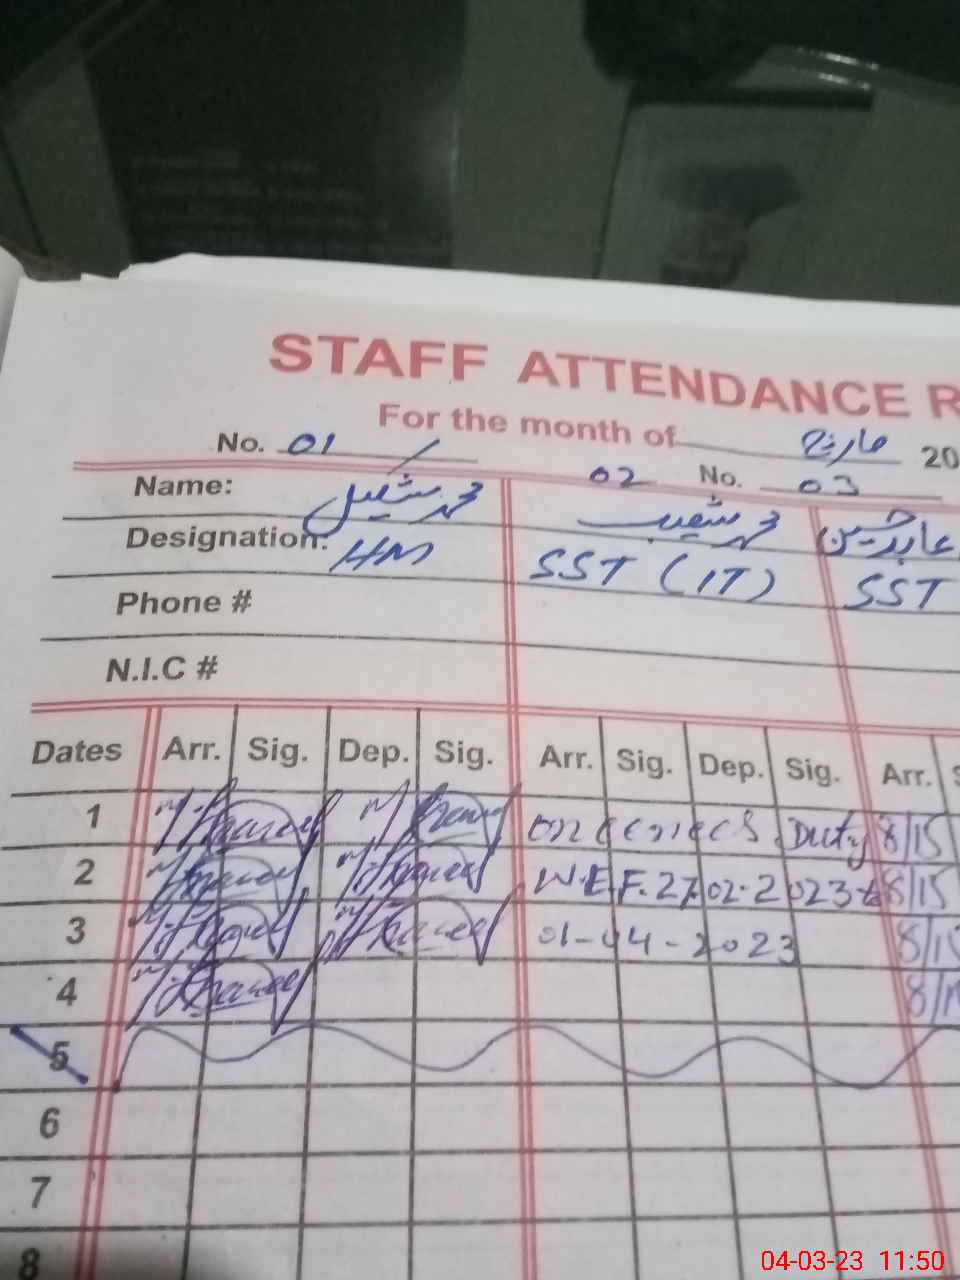 STAFF ATTENDANCE R
For the month of مارچ 20
No. 01 02 No. 03
Name: محمد شکیل محمد شعیب عابد حسین
Designation: HM SST (IT) SST
Phone #
N.I.C #
Dates Arr. Sig. Dep. Sig. Arr. Sig. Dep. Sig. Arr. S
1 on census Duty 8/15
2 W.E.F. 27.02.2023 to 8/15
3 01-04-2023 8/1
4 8/1
5
6
7
8
04-03-23 11:50